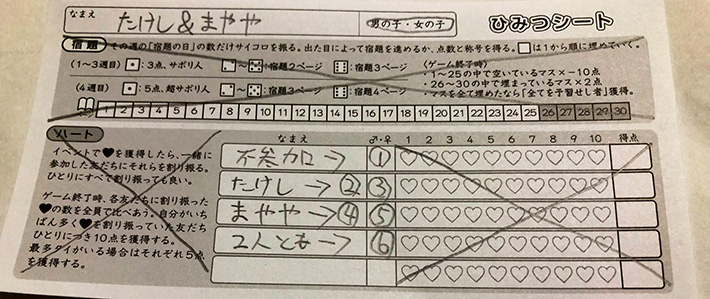 なまえ
たけし&まやや
男の子・女の子
ひみつシート
宿題
その週の「宿題の日」の数だけサイコロを振る。出た目によって宿題を進めるか、点数と称号を得る。□は1から順に埋めていく。
(1~3週目) ⚀:3点、サボリ人 ⚁~⚄:宿題2ページ ⚅:宿題3ページ
(4週目) ⚀:5点、超サボリ人 ⚁~⚄:宿題3ページ ⚅:宿題4ページ
〈ゲーム終了時〉
・1~25の中で空いているマス×-10点
・26~30の中で埋まっているマス×2点
・マスを全て埋めたなら「全てを予習せし者」獲得。
1 2 3 4 5 6 7 8 9 10 11 12 13 14 15 16 17 18 19 20 21 22 23 24 25 26 27 28 29 30
ハート
イベントで♥を獲得したら、一緒に
参加した友だちにそれらを割り振る。
ひとりにすべて割り振っても良い。
ゲーム終了時、各友だちに割り振った
♥の数を全員で比べあう。自分がいち
ばん多く♥を割り振っていた友だち
ひとりにつき10点を獲得する。
最多タイがいる場合はそれぞれ5点
を獲得する。
なまえ ♂・♀ 1 2 3 4 5 6 7 8 9 10 得点
不参加→ ①
たけし→② ③
まやや→④ ⑤
2人とも→ ⑥